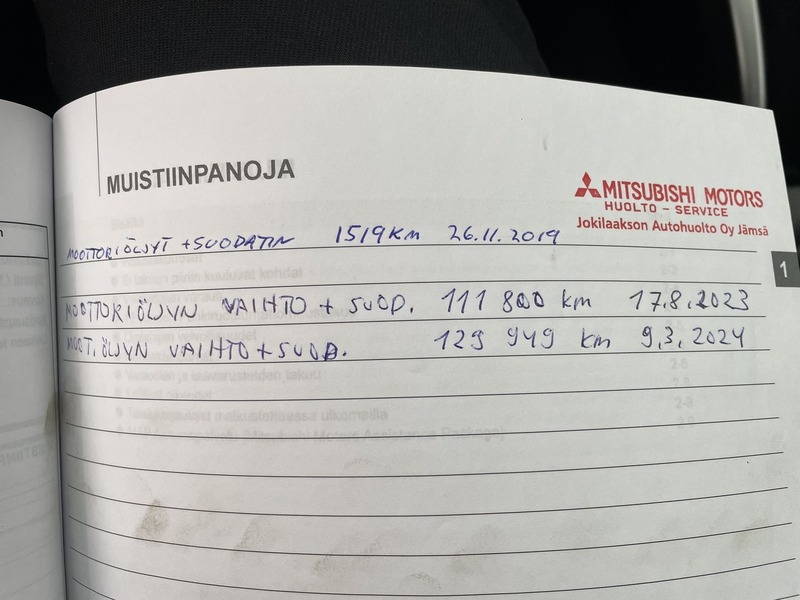 MUISTIINPANOJA
MITSUBISHI MOTORS
HUOLTO - SERVICE
Jokilaakson Autohuolto Oy Jämsä
MOOTTORIÖLJYT + SUODATIN 1519 KM 26.11.2019
1
MOOTTORIÖLJYN VAIHTO + SUOD. 111 800 km 17.8.2023
MOOT.ÖLJYN VAIHTO + SUOD. 129 949 km 9.3.2024